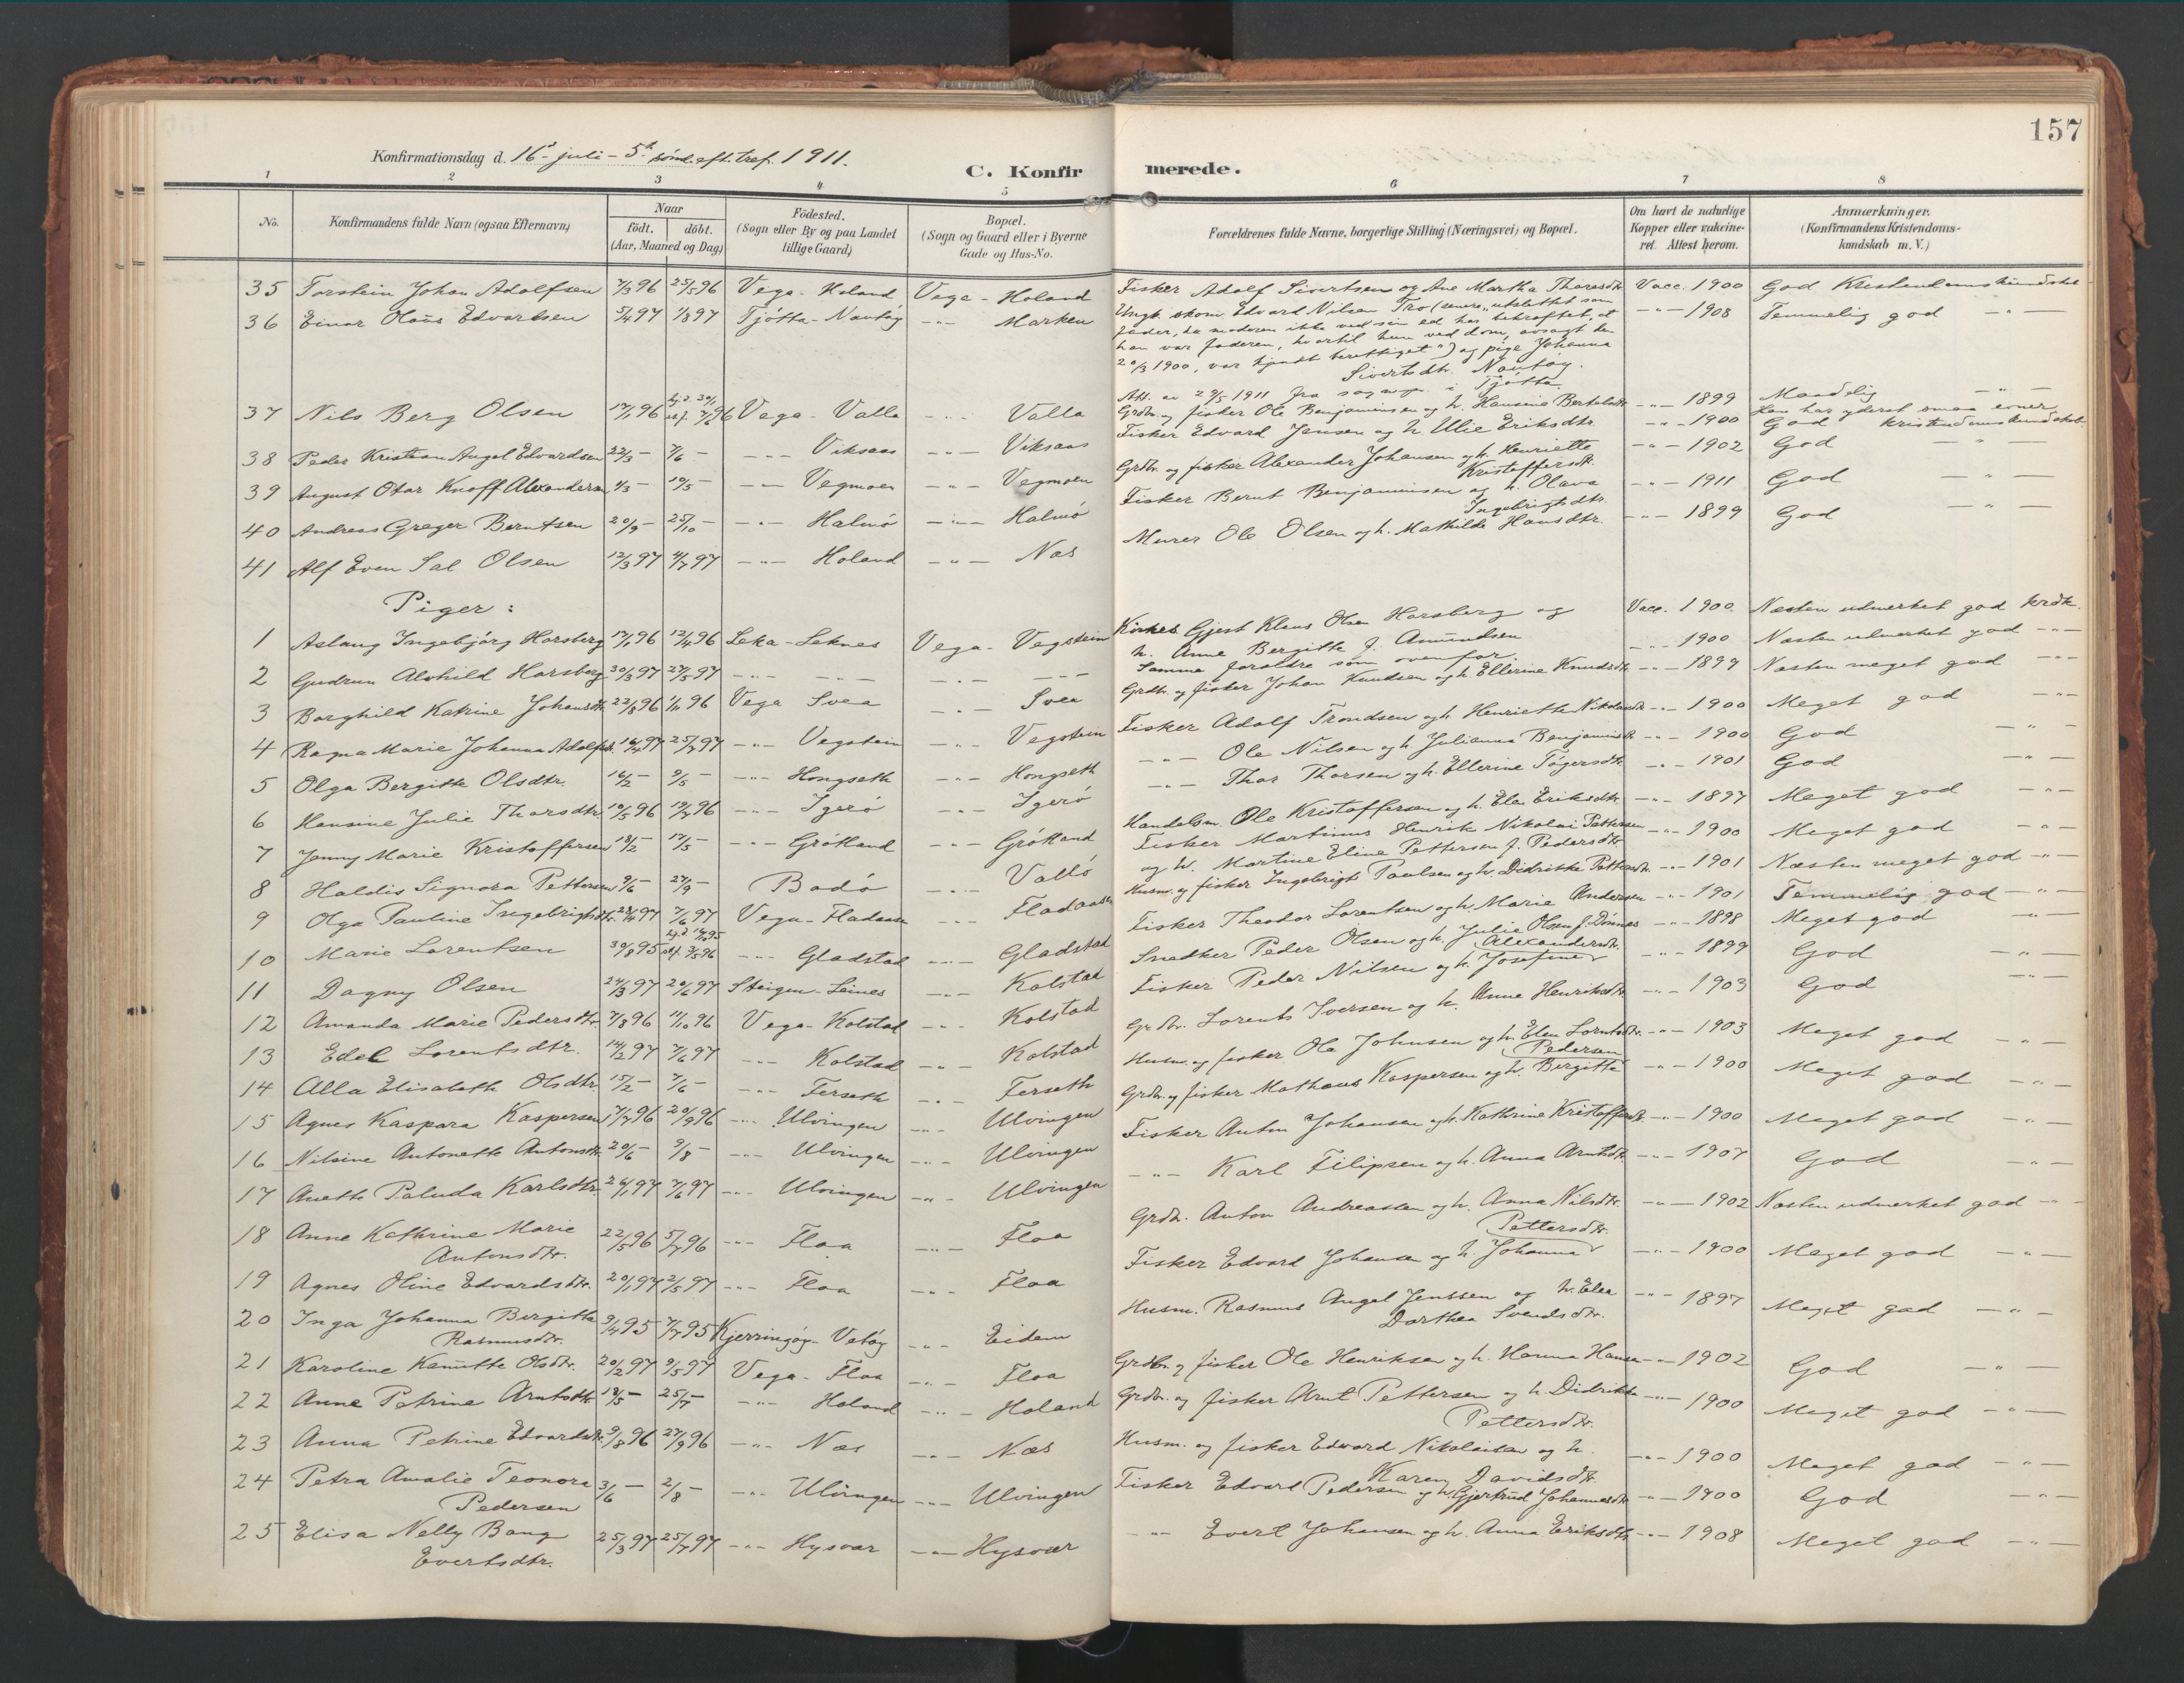 157
Konfirmationsdag d. 16de juli - 5te sönd. eft. tref. 1911.
C. Konfirmerede.
1 2 3 4 5 6 7 8
No. Konfirmandens fulde Navn (ogsaa Efternavn) Naar födt. döbt. (Aar, Maaned og Dag) Födested. (Sogn eller By og paa Landet tillige Gaard) Bopæl. (Sogn og Gaard eller i Byerne Gade og Hus-No. Forældrenes fulde Navne, borgerlige Stilling (Næringsvei) og Bopæl. Om havt de naturlige Kopper eller vakcineret. Attest herom. Anmærkninger. (Konfirmandens Kristendomskundskab m. V.)
35 Torstein Johan Adolfsen 7/3 96 25/5 96 Vega - Holand Vega - Holand Fisker Adolf Sivertsen og Ane Martha Thoresdtr. Vacc. 1900 God Kristendomskundskab
36 Einar Olaüs Edvardsen 5/4 97 1/8 97 Tjötta - Nautöy -"- Marken Ungk. skom. Edvard Nilsen Tro (senere "utslettet som -"- 1908 Temmelig god -"-
fader, da moderen ikke ved sin ed har bekræftet, at
han var faderen, hvortil hun ved dom, avsagt den
20/3 1900, var kjendt berettiget") og pige Johanna
Sivertsdtr. Nautöy.
Att. av 29/5 1911 fra sognepr. i Tjötta.
37 Nils Berg Olsen 17/1 96 hj.d. 30/1 st.f. 7/6 96 Vega - Valla -"- Valla Grdbr. og fisker Ole Benjaminsen og h. Hansine Bertelsdtr. -"- 1899 Maadelig -"-
Han har yderst smaa evner
38 Peder Kristian Angel Edvardsen 22/3 - 7/6 - -"- Viksaas -"- Viksaas Fisker Edvard Jensen og h. Ulie Eriksdtr. -"- 1900 God kristendomskundskab
39 August Otar Knoff Alexandersen 1/3 - 10/5 - -"- Vegmoen -"- Vegmoen Grdbr. og fisker Alexander Johansen og h. Henriette Kristoffersdtr. -"- 1902 God -"-
40 Andreas Greger Berntsen 20/9 - 25/10 - -"- Halmö -"- Halmö Fisker Bernt Benjaminsen og h. Olava Ingebrigtsdtr. -"- 1911 God -"-
41 Alf Even Sal Olsen 12/3 97 4/7 97 -"- Holand -"- Nes Murer Ole Olsen og h. Mathilde Hansdtr. -"- 1899 God -"-
Piger:
1 Aslaug Ingebjörg Horsberg 17/1 96 12/4 96 Leka - Leknes Vega - Vegstein Kirkes. Gjest Klaus Olsen Horsberg og h. Anne Bergitte f. Amundsen Vacc. 1900 Næsten udmerket god krdk.
2 Gudrun Alvhild Horsberg 30/3 97 27/5 97 -"- -"- -"- -"- Samme foraldre som ovenfor -"- 1900 Næsten udmerket god -"-
3 Borghild Katrine Johansdtr. 22/8 96 1/11 96 Vega Svea -"- Svea Grdbr. og fisker Johan Knudsen og h. Ellerine Knudsdtr. -"- 1897 Næsten meget god -"-
4 Ragna Marie Johanna Adolfsdtr. 16/4 97 25/7 97 -"- Vegstein -"- Vegstein Fisker Adolf Trondsen og h. Henriette Nikolaisdtr. -"- 1900 Meget god -"-
5 Olga Bergitte Olsdtr. 16/2 - 9/5 - -"- Hongseth -"- Hongseth -"- Ole Nilsen og h. Julianna Benjaminsdtr. -"- 1900 God -"-
6 Hansine Julie Thorsdtr. 10/5 96 19/7 96 -"- Igerö -"- Igerö -"- Thor Thorsen og h. Ellerine Tögersdtr. -"- 1901 God -"-
7 Jenny Marie Kristoffersen 18/2 - 17/5 - -"- Grötland -"- Grötland Handelsm. Ole Kristoffersen og h. Elen Eriksdtr. -"- 1897 Meget god -"-
8 Haldis Signora Pettersen 9/6 - 27/9 - Bodö -"- Vallö Fisker Martinus Henrik Nikolai Pettersen og h. Martine Eline Pettersen f. Pedersdtr. -"- 1900 Meget god -"-
9 Olga Pauline Ingebrigtsdtr. 22/4 97 7/6 97 Vega - Fladaasen -"- Fladaasen Husm. og fisker Ingebrigt Paulsen og h. Didrikke Pettersdtr. -"- 1901 Næsten meget god -"-
10 Marie Lorentsen 30/8 95 st.f. 3/5 96 -"- Gladstad -"- Gladstad Fisker Theodor Lorentsen og h. Marie Andersen -"- 1901 Temmelig god -"-
11 Dagny Olsen 24/3 97 20/6 97 Steigen - Leines -"- Kolstad Snedker Peder Olsen og h. Julie Olsen f. Dönnes -"- 1898 Meget god -"-
12 Amanda Marie Pedersdtr. 7/8 96 11/10 96 Vega - Kolstad -"- Kolstad Fisker Peder Nilsen og h. Josefine Alexandersdtr. -"- 1899 God -"-
13 Edel Lorentsdtr. 14/2 97 7/6 97 -"- Kolstad -"- Kolstad Grdbr. Lorents Iversen og h. Anne Henriksdtr. -"- 1903 God -"-
14 Alla Elisabeth Olsdtr. 15/2 - 7/6 - -"- Ferseth -"- Ferseth Husm. og fisker Ole Johnsen og h. Elen Lorntsdtr. -"- 1903 Meget god -"-
15 Agnes Kaspara Kaspersen 17/7 96 20/9 96 -"- Ulvingen -"- Ulvingen Grdbr. og fisker Mathæus Kaspersen og h. Bergitte Pedersen -"- 1900 Meget god -"-
16 Nilsine Antonette Antonsdtr. 20/6 - 9/8 - -"- Ulvingen -"- Ulvingen Fisker Anton Johansen og h. Kathrine Kristoffersdtr. -"- 1900 Meget god -"-
17 Anette Paluda Karlsdtr. 26/1 97 7/6 97 -"- Ulvingen -"- Ulvingen -"- Karl Filipsen og h. Anna Arntsdtr. -"- 1907 God -"-
18 Anne Kathrine Marie Antonsdtr. 22/5 96 5/7 96 -"- Floa -"- Floa Grdbr. Anton Andreassen og h. Anna Nilsdtr. -"- 1902 Næsten udmerket god -"-
19 Agnes Oline Edvardsdtr. 20/1 97 2/5 97 -"- Floa -"- Floa Fisker Edvard Johansen og h. Johanna Pettersdtr. -"- 1900 Meget god -"-
20 Inga Johanna Bergitte Rasmusdtr. 9/4 95 7/7 95 Kjerringöy - Vetöy -"- Eidem Husm. Rasmus Angel Jenssen og h. Elen Dorthea Svendsdtr. -"- 1897 Meget god -"-
21 Karoline Kamitte Olsdtr. 20/2 97 9/5 97 Vega - Floa -"- Floa Grdbr. og fisker Ole Henriksen og h. Hanna Hansen -"- 1902 God -"-
22 Anne Petrine Arntsdtr. 18/5 - 25/7 - -"- Holand -"- Holand Grdbr. og fisker Arnt Pettersen og h. Didrikke Pettersdtr. -"- 1900 Meget god -"-
23 Anna Petrine Edvardsdtr. 9/8 96 27/9 96 -"- Næs -"- Næs Husm. og fisker Edvard Nikolaisen og h. Karen Davidsdtr. -"- 1900 Meget god -"-
24 Petra Amalie Teonora Pedersen 3/6 - 2/8 - -"- Ulvingen -"- Ulvingen Fisker Edvard Pedersen og h. Gjertrud Johannesdtr. -"- 1900 God -"-
25 Elisa Nelly Bang Evertsdtr. 25/3 97 25/7 97 -"- Hysvær -"- Hysvær -"- Evert Johansen og h. Anna Eriksdtr. -"- 1908 Meget god -"-